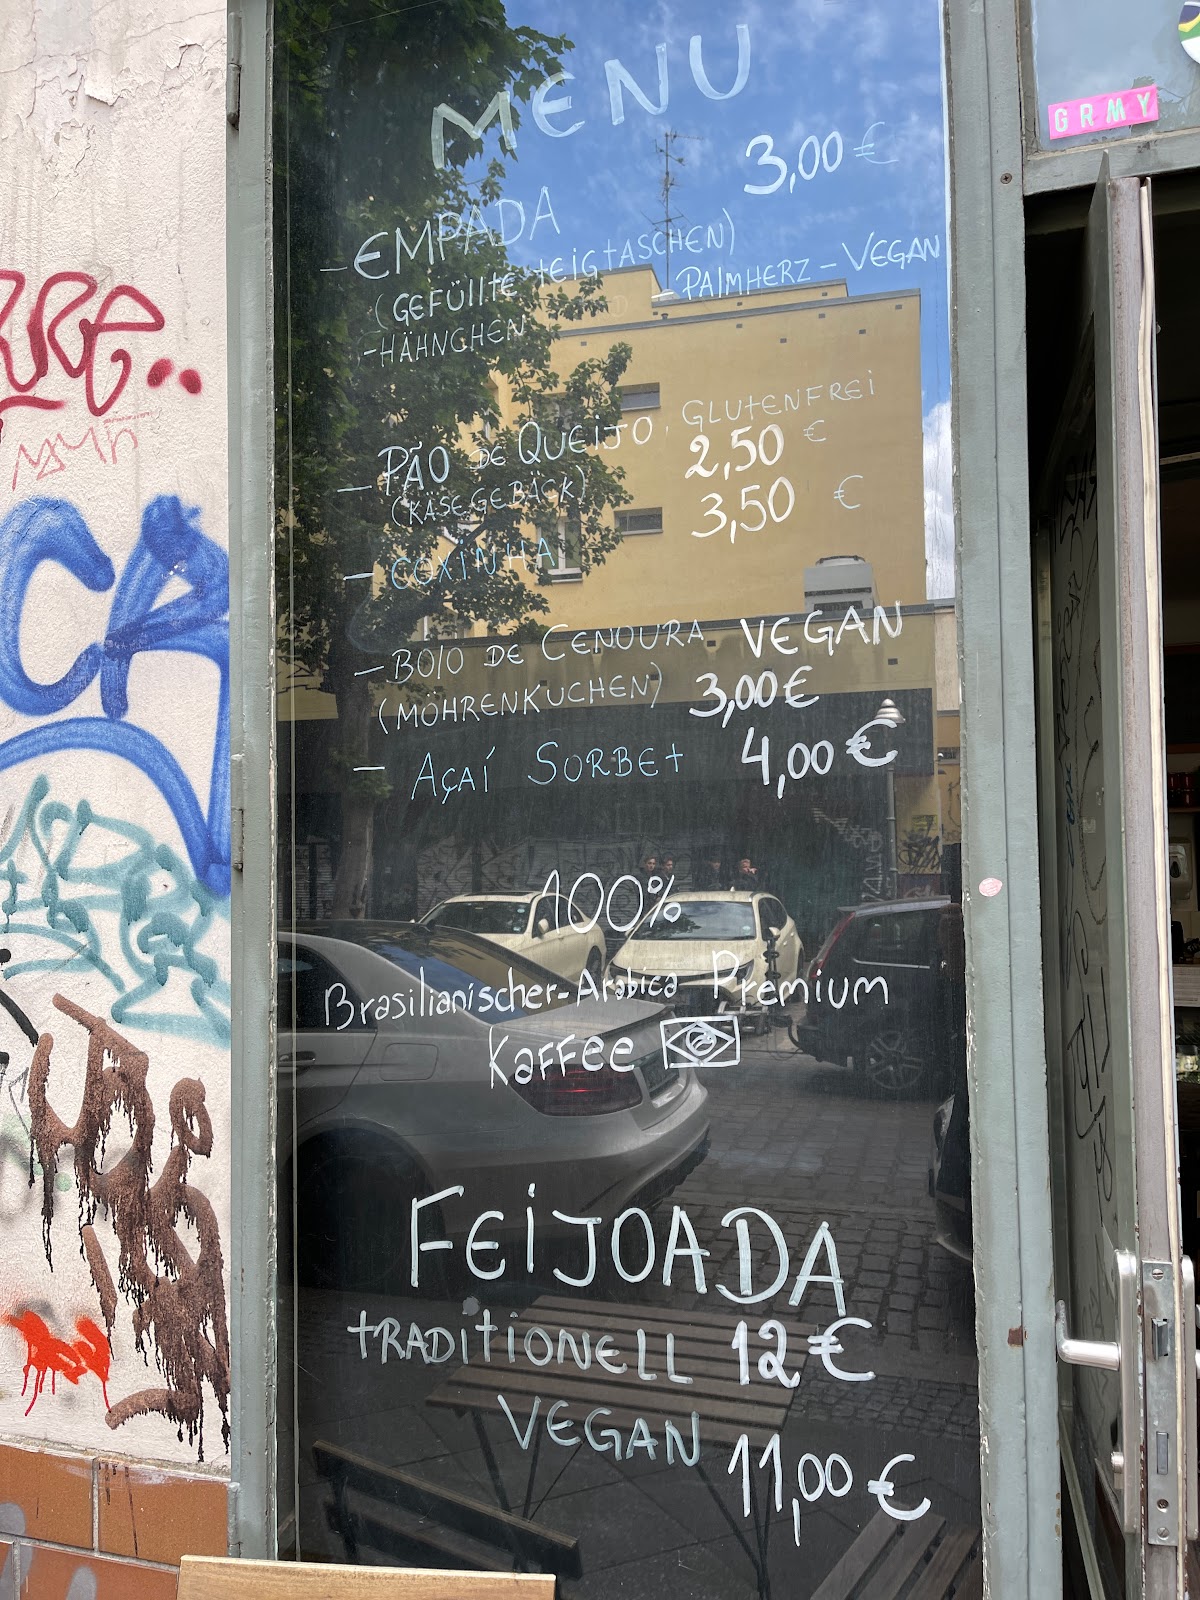 MENU
3,00 €
- EMPADA
(GEFÜLLTE TEIGTASCHEN)
- HÄHNCHEN - PALMHERZ - VEGAN
- PÃO DE QUEIJO, GLUTENFREI
(KÄSEGEBÄCK) 2,50 €
- COXINHA 3,50 €
- BOLO DE CENOURA VEGAN
(MÖHRENKUCHEN) 3,00 €
- AÇAÍ SORBET 4,00 €
100%
Brasilianischer-Arabica Premium
Kaffee
FEIJOADA
TRADITIONELL 12 €
VEGAN 11,00 €
GRMY